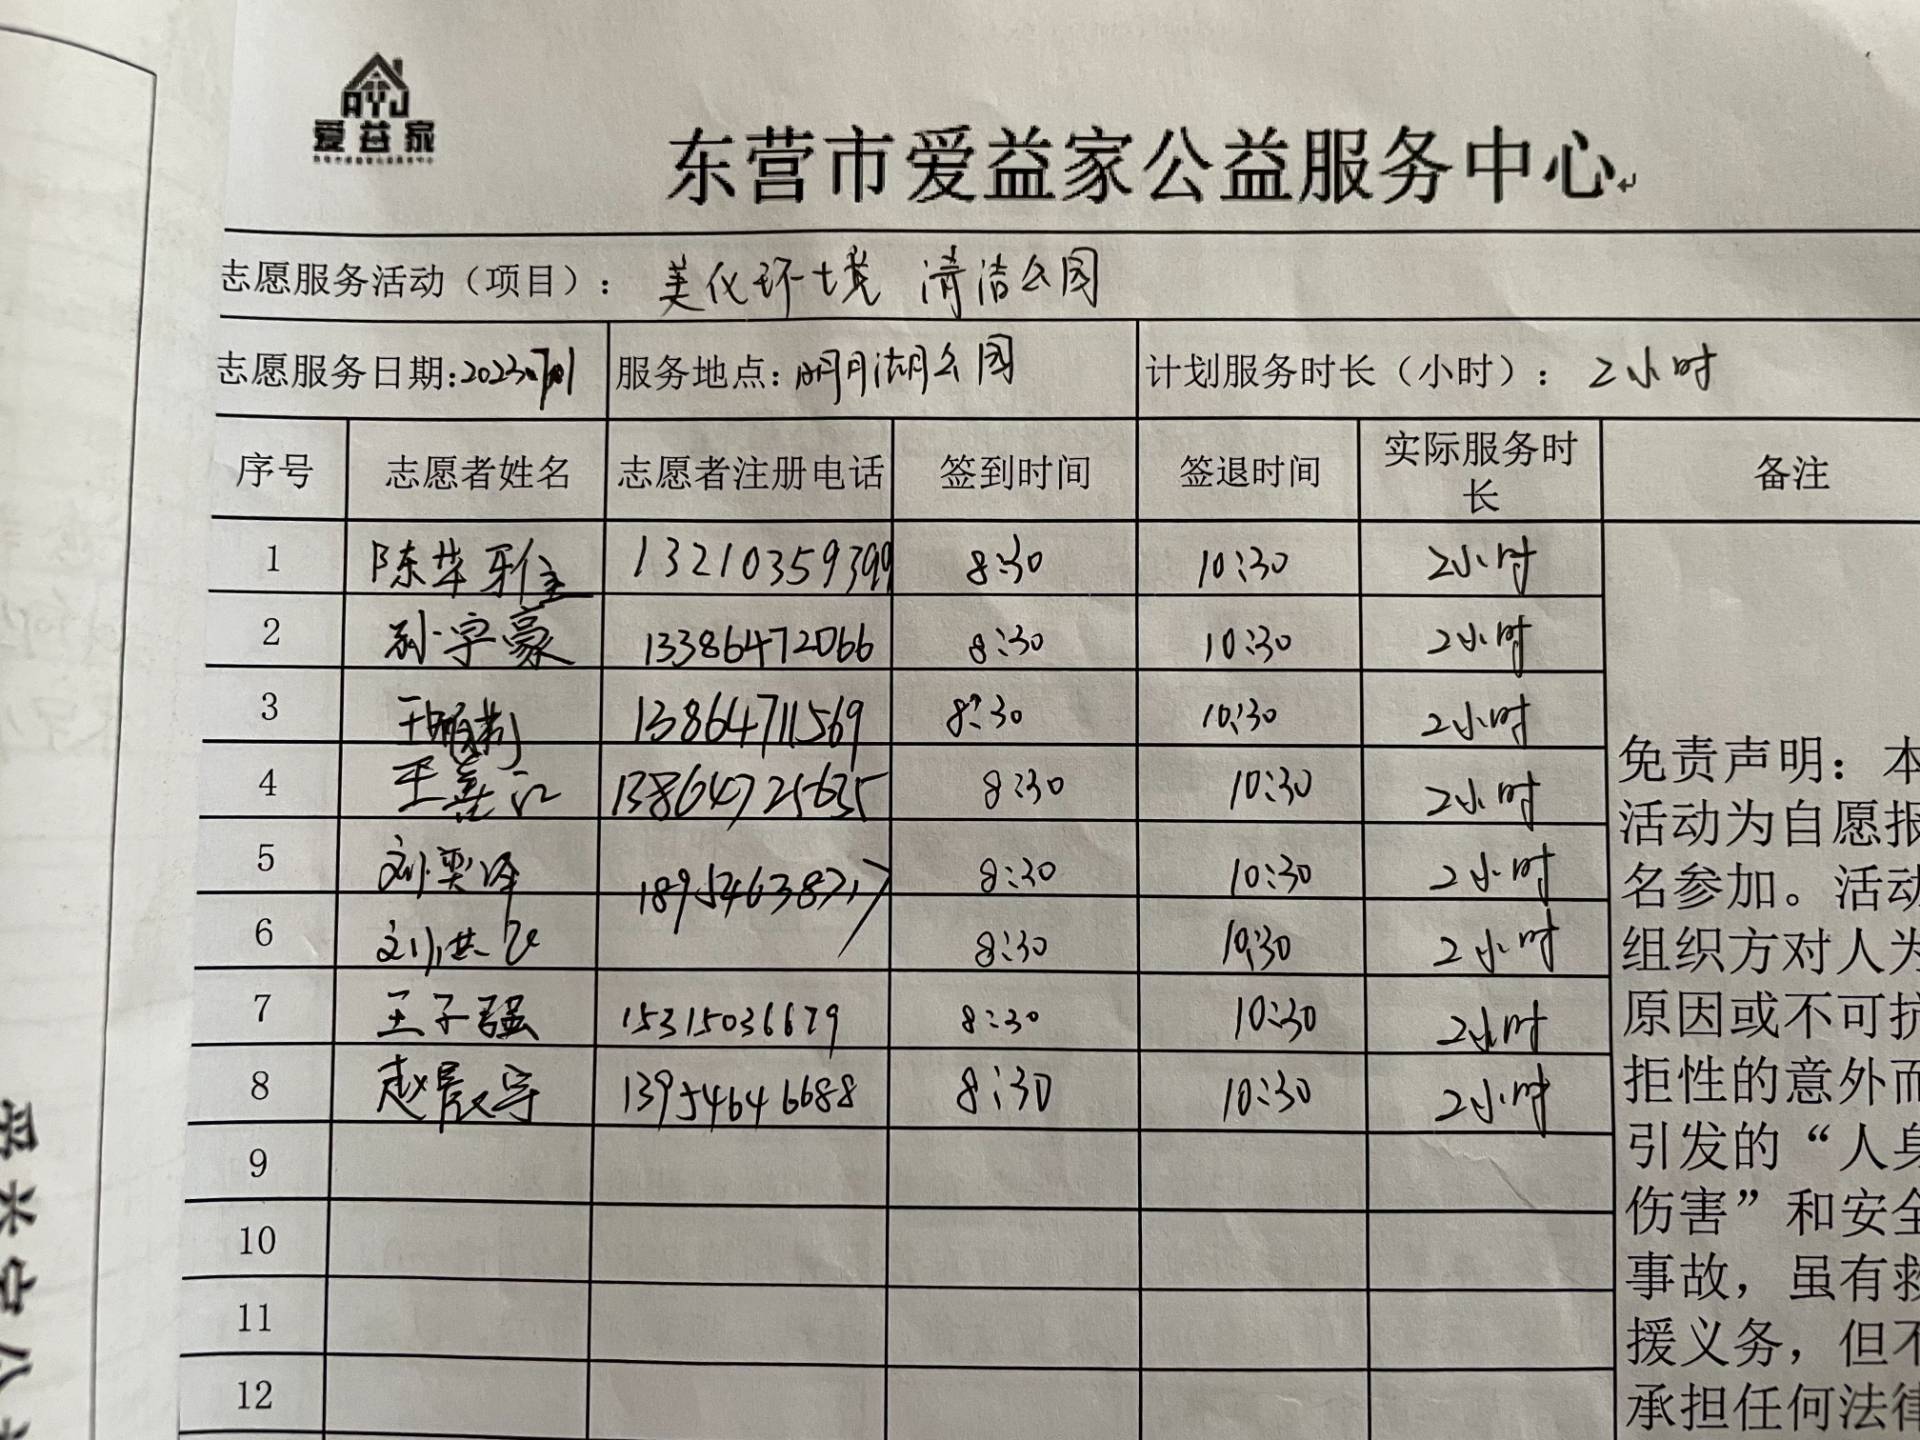 AYJ
爱益家
东营市爱益家公益服务中心
志愿服务活动（项目）： 美化环境 清洁公园
志愿服务日期: 服务地点：明月湖公园 计划服务时长（小时）： 2小时
序号 志愿者姓名 志愿者注册电话 签到时间 签退时间 实际服务时长 备注
1 陈华雅 13210359399 8:30 10:30 2小时
2 孙宇豪 13386472066 8:30 10:30 2小时
3 13864711569 8:30 10:30 2小时
4 13864725635 8:30 10:30 2小时
5 刘奕泽 8:30 10:30 2小时
6 8:30 10:30 2小时
7 王子强 15315036679 8:30 10:30 2小时
8 赵晨宇 13954646688 8:30 10:30 2小时
9
10
11
12
免责声明：本
活动为自愿报
名参加。活动
组织方对人为
原因或不可抗
拒性的意外而
引发的“人身
伤害”和安全
事故，虽有救
援义务，但不
承担任何法律